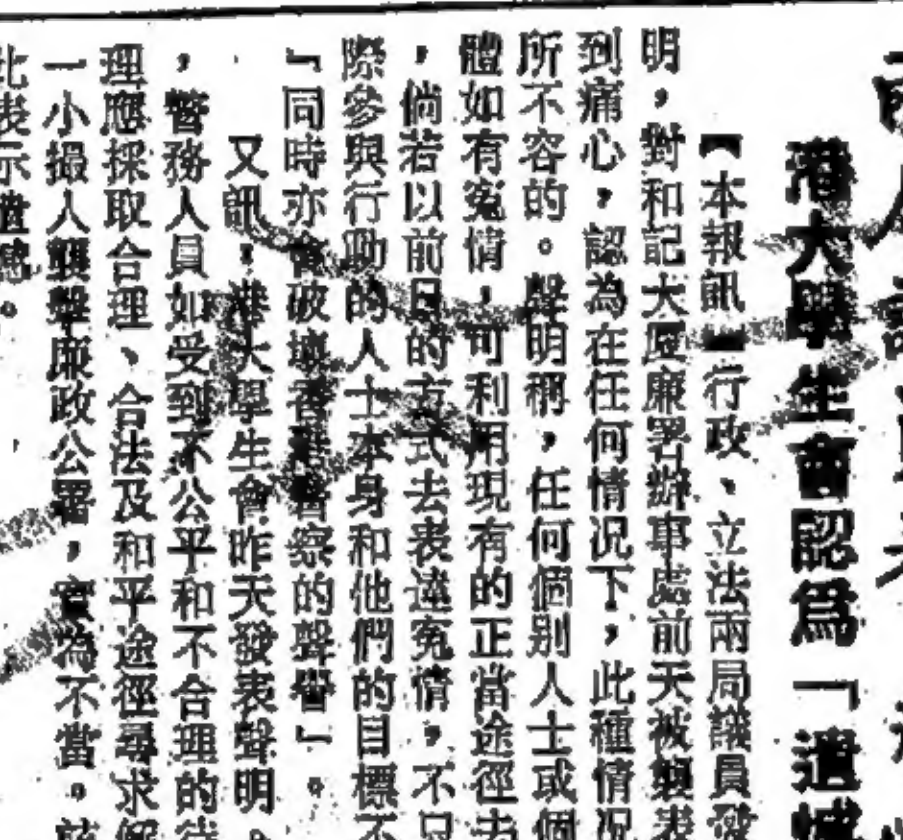 港大學生會認爲「遺憾
【本報訊】行政、立法兩局議員發
明，對和記大厦廉署辦事處前天被
到痛心，認為在任何情况下，此種情况
所不容的。聲明稱，任何個别人士或個
體如有冤情，可利用現有的正當途徑去
，倘若以前日的方式去表達冤情，不只
際參與行動的人士本身和他們的目標不
『同時亦會破壞香港警察的聲譽」。
又訊，港大學生會昨天發表聲明，
，警務人員如受到不公平和不合理的待
理應採取合理、合法及和平途徑尋求解
一小撮人襲擊廉政公署，實為不當。
此表示遺憾。